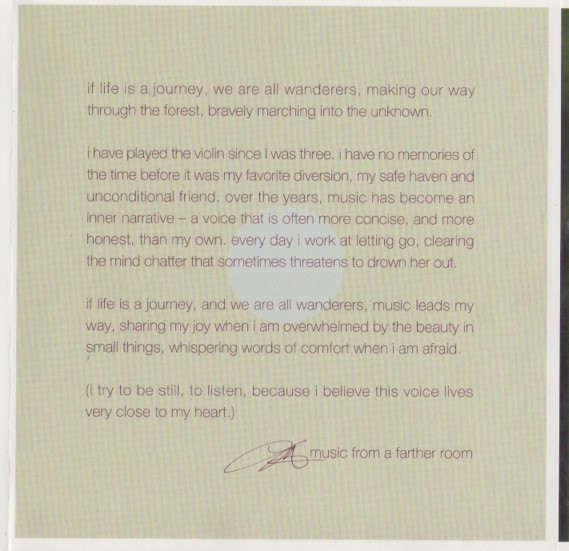 if life is a journey, we are all wanderers, making our way
through the forest, bravely marching into the unknown.
i have played the violin since I was three. i have no memories of
the time before it was my favorite diversion, my safe haven and
unconditional friend. over the years, music has become an
inner narrative – a voice that is often more concise, and more
honest, than my own. every day i work at letting go, clearing
the mind chatter that sometimes threatens to drown her out.
if life is a journey, and we are all wanderers, music leads my
way, sharing my joy when i am overwhelmed by the beauty in
small things, whispering words of comfort when i am afraid.
(i try to be still, to listen, because i believe this voice lives
very close to my heart.)
music from a farther room